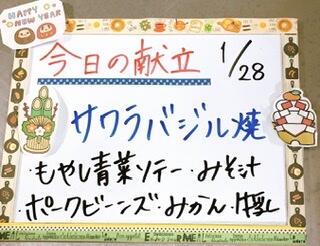 HAPPY NEW YEAR
今日の献立 1/28
サワラバジル焼
・もやし青菜ソテー・みそ汁
・ポークビーンズ・みかん・牛乳